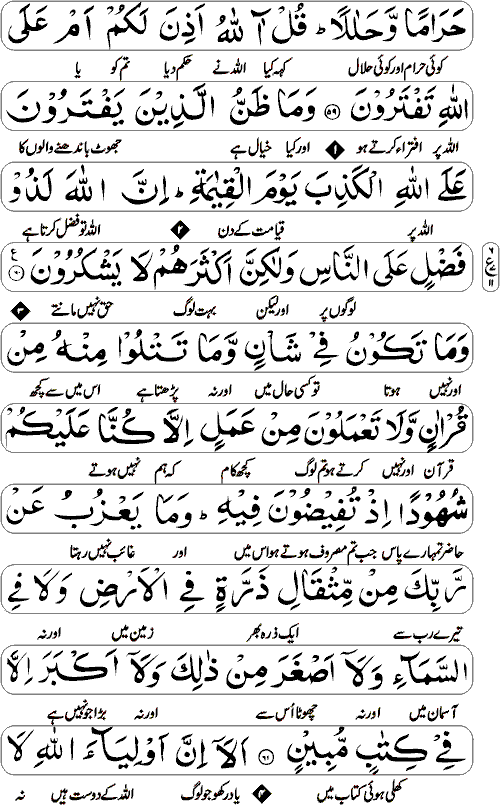 حَرَامًا وَّحَلٰلًا ؕ قُلْ آٰللّٰهُ اَذِنَ لَكُمْ اَمْ عَلَى
کوئی حرام اور کوئی حلال کہہ کیا اللہ نے حکم دیا تم کو یا
اللّٰهِ تَفْتَرُوْنَ ۝۵۹ وَمَا ظَنُّ الَّذِيْنَ يَفْتَرُوْنَ
اللہ پر افتراء کرتے ہو ۱ اور کیا خیال ہے جھوٹ باندھنے والوں کا
عَلَى اللّٰهِ الْكَذِبَ يَوْمَ الْقِيٰمَةِ ؕ اِنَّ اللّٰهَ لَذُوْ
اللہ پر قیامت کے دن ۲ اللہ تو فضل کرتا ہے
فَضْلٍ عَلَى النَّاسِ وَلٰكِنَّ اَكْثَرَهُمْ لَا يَشْكُرُوْنَ ۝۶۰
لوگوں پر اور لیکن بہت لوگ حق نہیں مانتے ۳
وَمَا تَكُوْنُ فِيْ شَاْنٍ وَّمَا تَتْلُوْا مِنْهُ مِنْ
اور نہیں ہوتا تو کسی حال میں اور نہ پڑھتا ہے اس میں سے کچھ
قُرْاٰنٍ وَّلَا تَعْمَلُوْنَ مِنْ عَمَلٍ اِلَّا كُنَّا عَلَيْكُمْ
قرآن اور نہیں کرتے ہو تم لوگ کچھ کام کہ ہم نہیں ہوتے
شُهُوْدًا اِذْ تُفِيْضُوْنَ فِيْهِ ؕ وَمَا يَعْزُبُ عَنْ
حاضر تمہارے پاس جب تم مصروف ہوتے ہو اس میں اور غائب نہیں رہتا
رَّبِّكَ مِنْ مِّثْقَالِ ذَرَّةٍ فِي الْاَرْضِ وَلَا فِي
تیرے رب سے ایک ذرہ بھر زمین میں اور نہ
السَّمَآءِ وَلَآ اَصْغَرَ مِنْ ذٰلِكَ وَلَآ اَكْبَرَ اِلَّا
آسمان میں اور نہ چھوٹا اُس سے اور نہ بڑا جو نہیں ہے
فِيْ كِتٰبٍ مُّبِيْنٍ ۝۶۱ اَلَآ اِنَّ اَوْلِيَآءَ اللّٰهِ لَا
کھلی ہوئی کتاب میں ۴ یاد رکھو جو لوگ اللہ کے دوست ہیں نہ